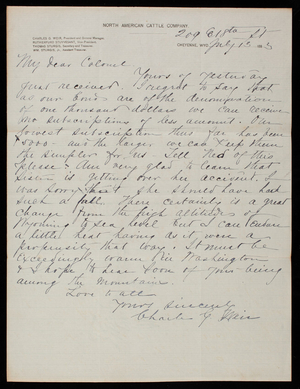 NORTH AMERICAN CATTLE COMPANY.
209 E 18th St
CHEYENNE, WYO. July 12 1883
My dear Colonel
Yours of yesterday
just received. I regret to say that
as our bonds are of the denomination
of one thousand dollars we can receive
no subscriptions of less amount. Our
lowest subscription thus far has been
$5000 - and the larger we can keep them
the simpler for us. Tell Ned of this
please. Am very glad to learn that
sister is getting over her accident. I
was sorry that she should have had
such a fall. There certainly is a great
change from the high altitudes of
Wyoming to sea level but I can return
a little that having as it were a
propensity that way. It must be
exceedingly warm in Washington
& I hope to hear soon of your being
among the Mountains.
Love to all
Yours sincerely
Charles